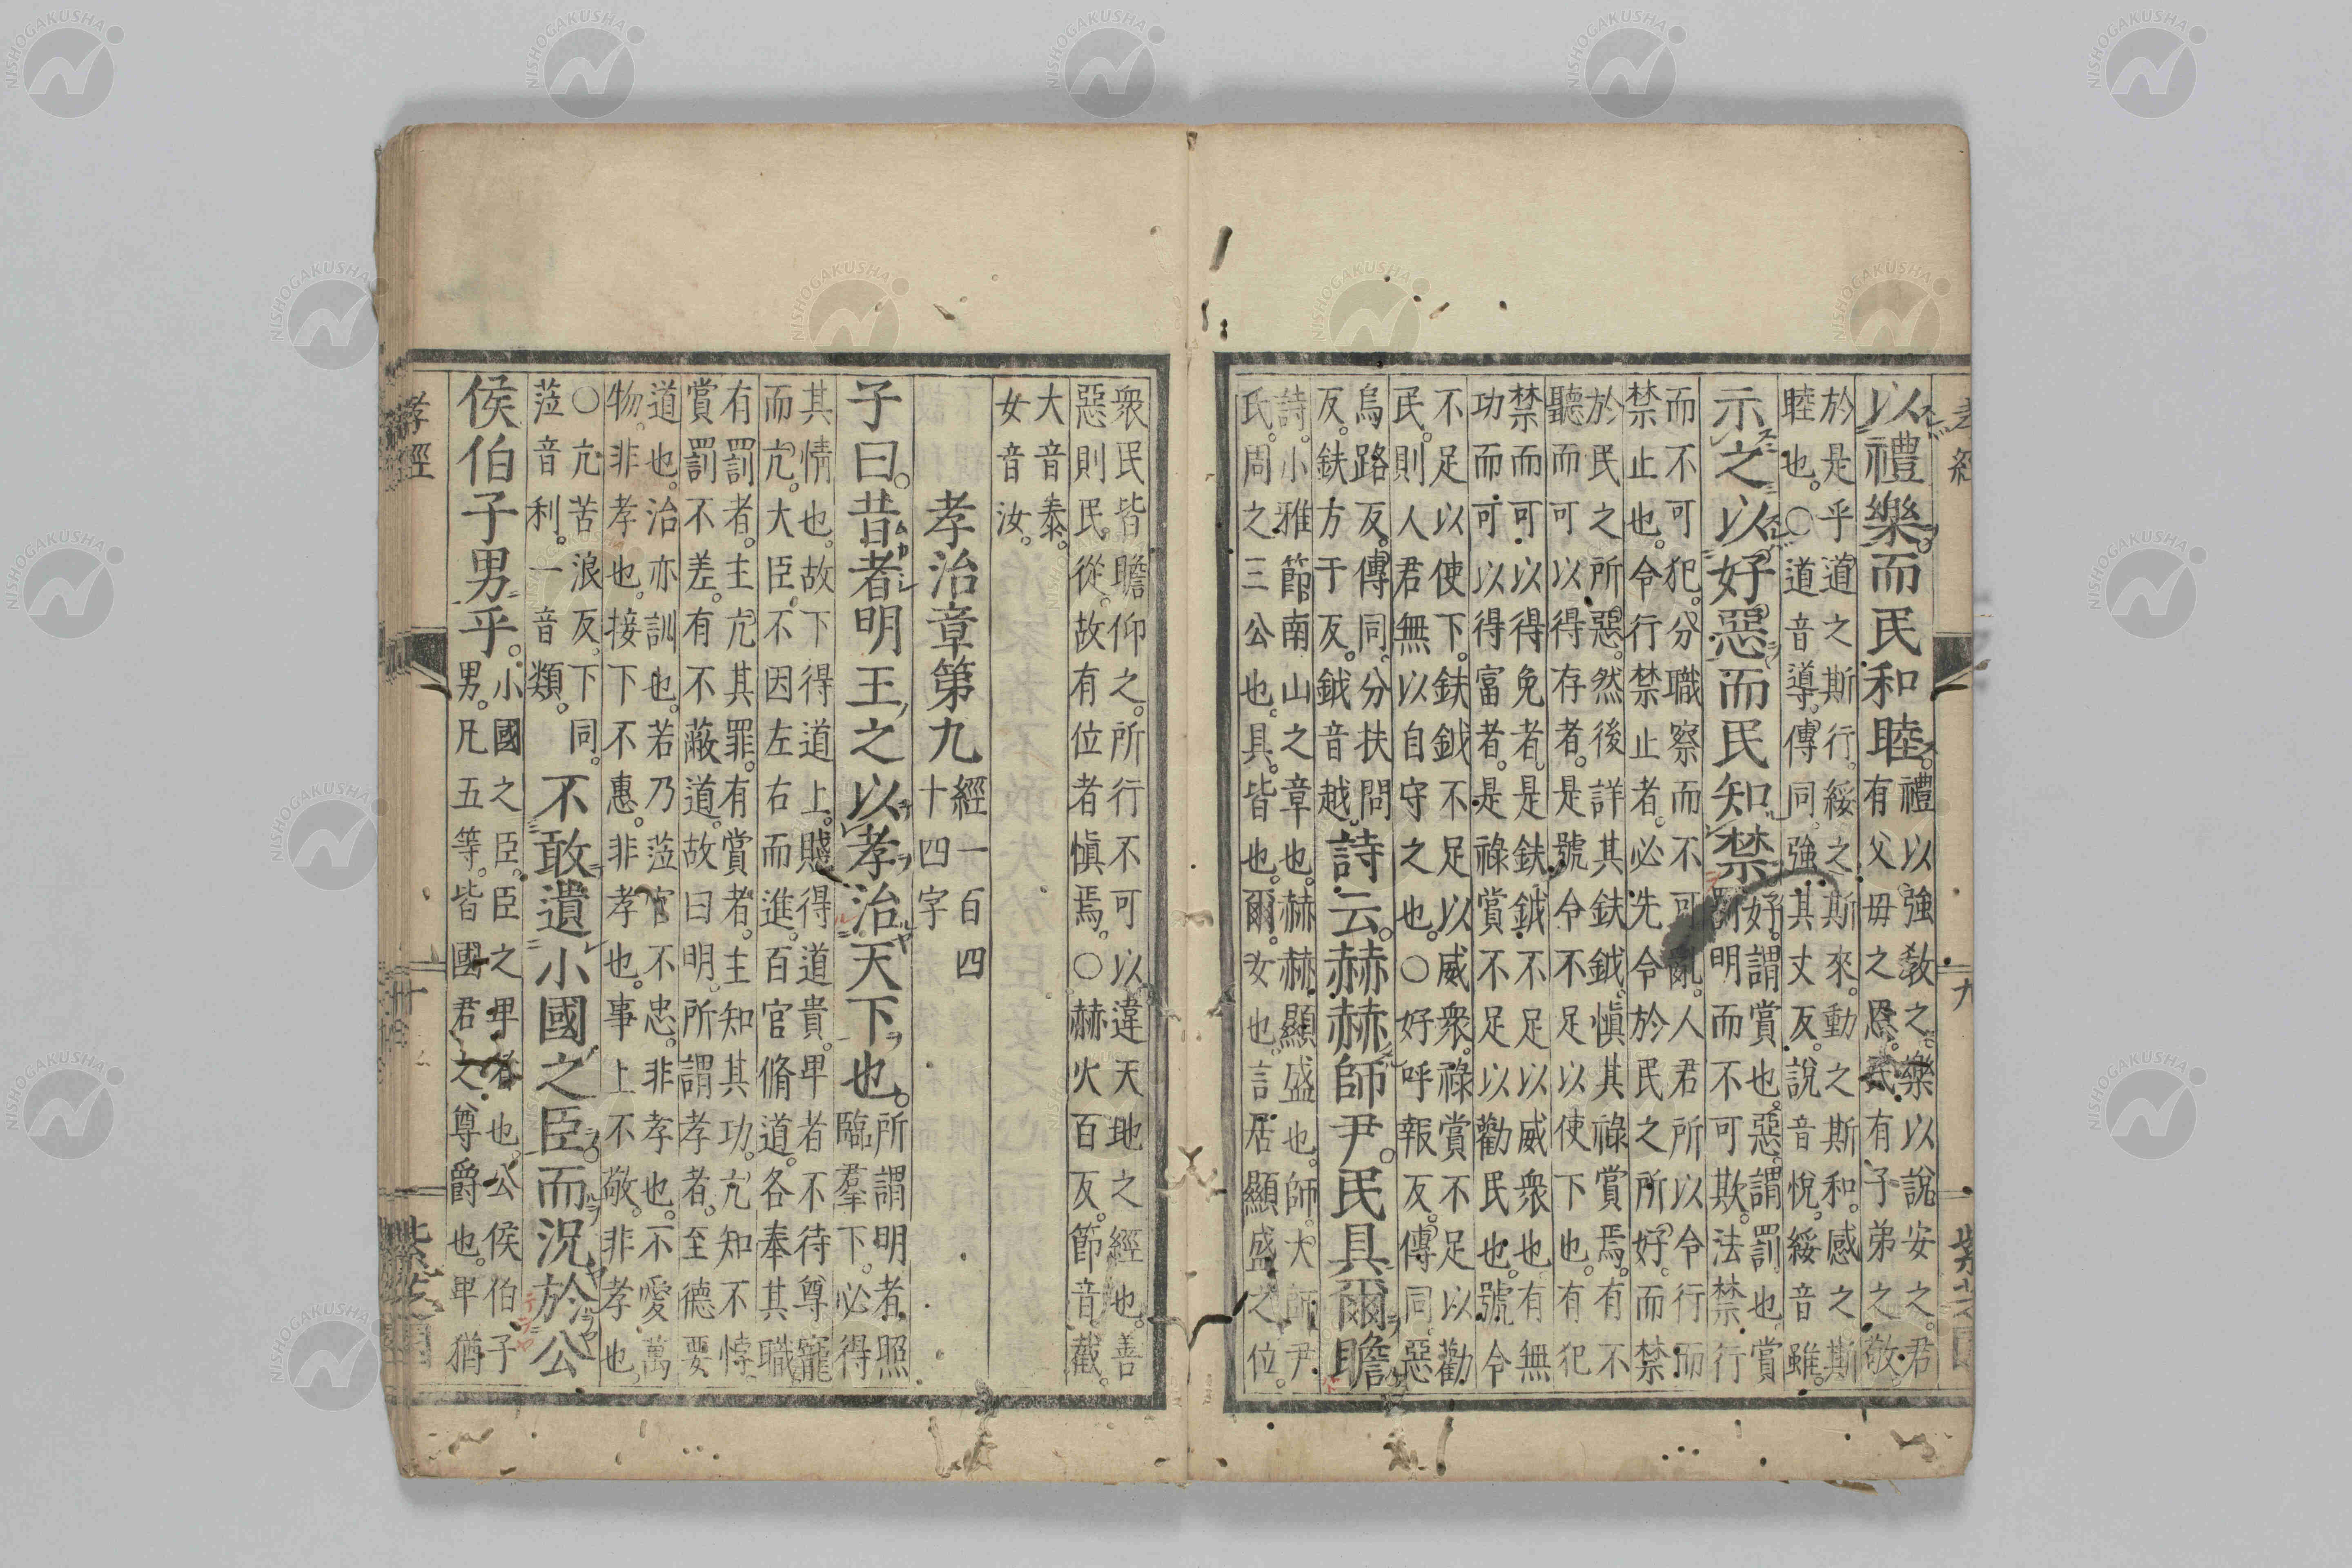 以禮樂而民和睦。禮以強敎之樂以說安之。君
有父母之恩。民有子弟之敬。
於是乎道之斯行。綏之斯來。動之斯和。感之斯
睦也。○道音導。傳同。強其丈反。說音悅。綏音雖。
示之以好惡而民知禁。好謂賞也。惡謂罰也。賞
罰明而不可欺。法禁行
而不可犯。分職察而不可亂。人君所以令行而
禁止也。令行禁止者。必先令於民之所好。而禁
於民之所惡。然後詳其鈇鉞。愼其祿賞焉。有不
聽而可以得存者。是號令不足以使下也。有犯
禁而可以得免者。是鈇鉞不足以威衆也。有無
功而可以得富者。是祿賞不足以勸民也。號令
不足以使下。鈇鉞不足以威衆。祿賞不足以勸
民。則人君無以自守之也。○好呼報反。傳同。惡
烏路反。傳同。分扶問
反。鈇方于反。鉞音越。詩云。赫赫師尹。民具爾瞻
詩。小雅節南山之章也。赫赫。顯盛也。師。大師。尹
氏。周之三公也。具。皆也。爾。女也。言居顯盛之位。
衆民皆瞻仰之。所行不可以違天地之經也。善
惡則民從。故有位者愼焉。○赫火百反。節音截。
大音泰。
女音汝。
孝治章第九 經一百四
十四字
子曰。昔者明王之以孝治天下也。所謂明者。照
臨羣下。必得
其情也。故下得道上。賤得道貴。卑者不待尊寵
而亢。大臣不因左右而進。百官脩道。各奉其職
有罰者。主亢其罪。有賞者。主知其功。亢知不悖
賞罰不差。有不蔽道。故曰明。所謂孝者。至德要
道也。治亦訓也。若乃蒞官不忠。非孝也。不愛萬
物。非孝也。接下不惠。非孝也。事上不敬。非孝也。
○亢苦浪反。下同。
蒞音利。一音類。不敢遺小國之臣。而況於公
侯伯子男乎。小國之臣。臣之卑者也。公侯伯子
男。凡五等。皆國君之尊爵也。卑猶
孝經
十